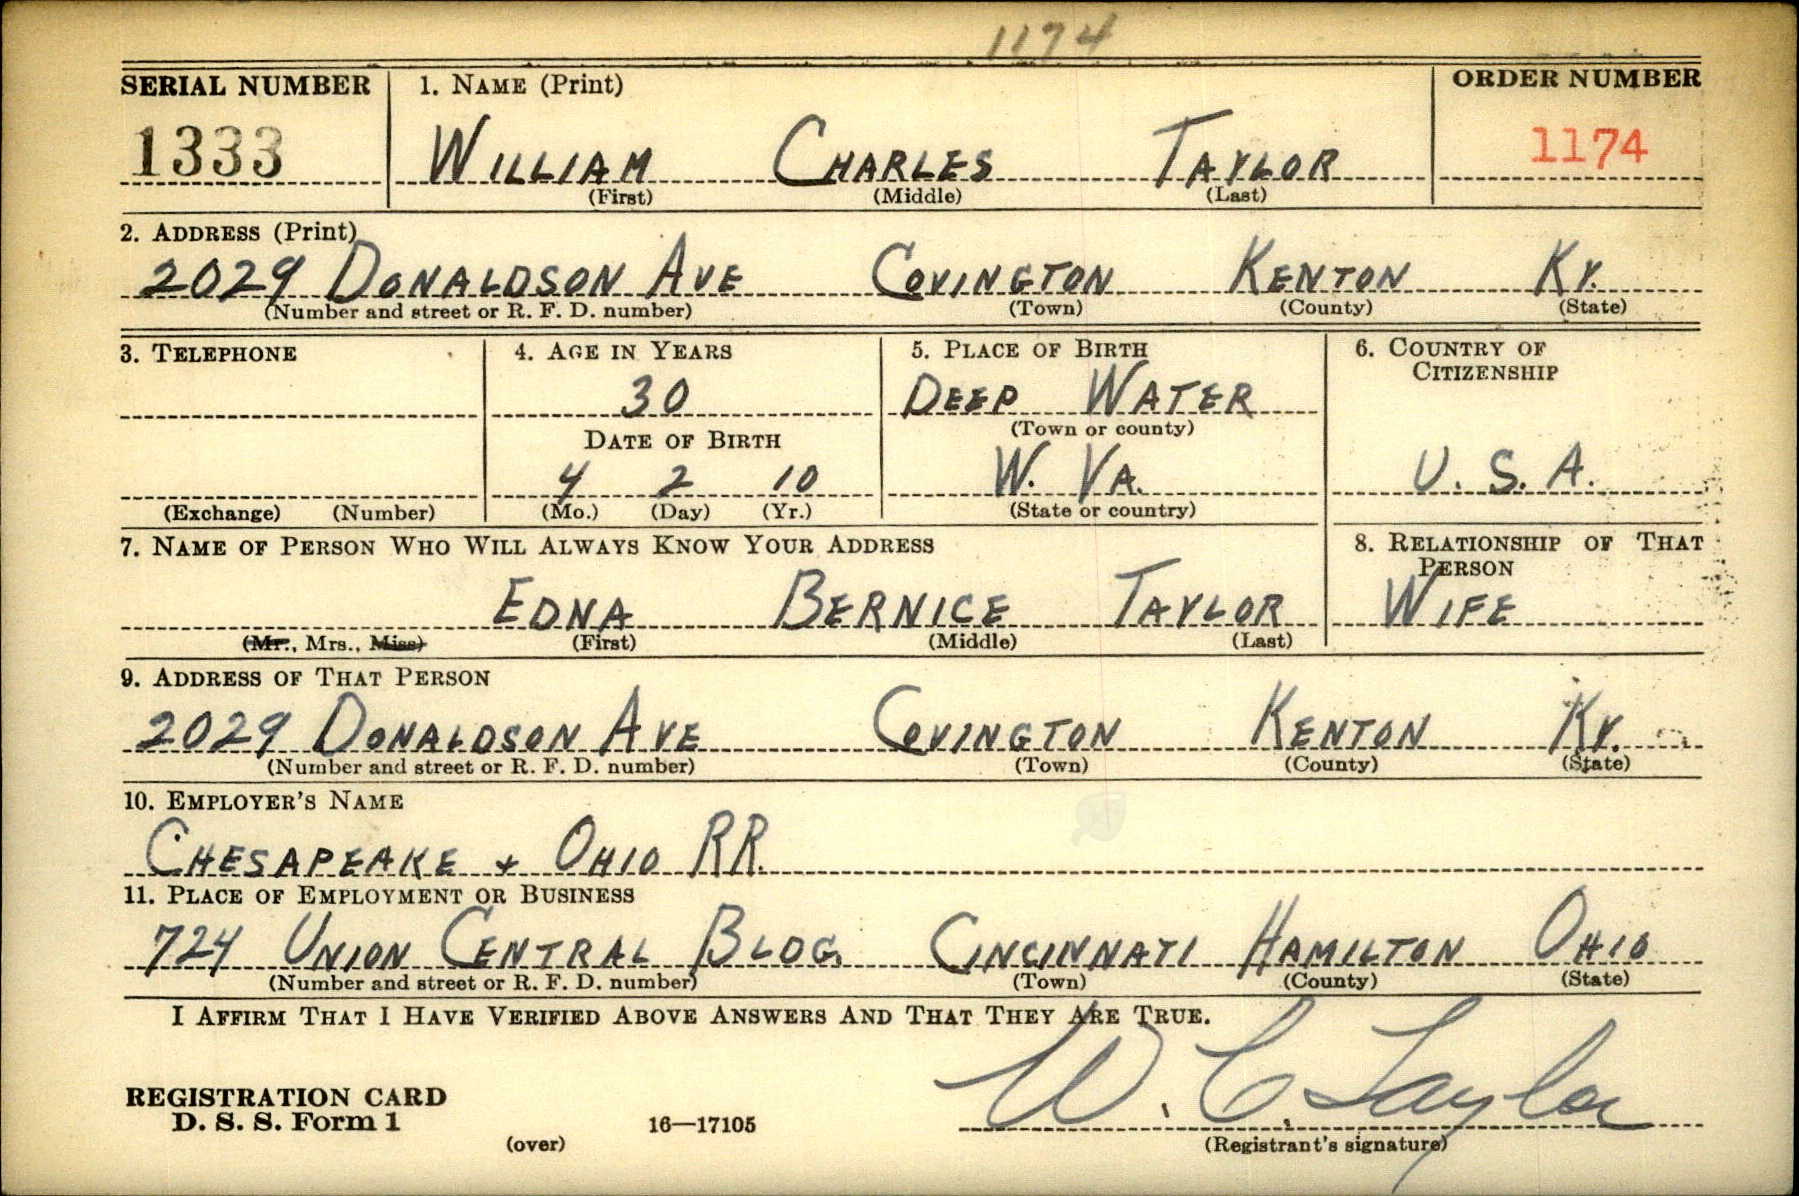 1174
SERIAL NUMBER 1. NAME (Print) ORDER NUMBER
1333 WILLIAM CHARLES TAYLOR 1174
(First) (Middle) (Last)
2. ADDRESS (Print)
2029 DONALDSON AVE COVINGTON KENTON KY.
(Number and street or R. F. D. number) (Town) (County) (State)
3. TELEPHONE 4. AGE IN YEARS 5. PLACE OF BIRTH 6. COUNTRY OF
CITIZENSHIP
30 DEEP WATER
(Town or county)
DATE OF BIRTH
4 2 10 W. VA. U. S. A.
(Exchange) (Number) (Mo.) (Day) (Yr.) (State or country)
7. NAME OF PERSON WHO WILL ALWAYS KNOW YOUR ADDRESS 8. RELATIONSHIP OF THAT
PERSON
EDNA BERNICE TAYLOR WIFE
(Mr., Mrs., Miss) (First) (Middle) (Last)
9. ADDRESS OF THAT PERSON
2029 DONALDSON AVE COVINGTON KENTON KY.
(Number and street or R. F. D. number) (Town) (County) (State)
10. EMPLOYER'S NAME
CHESAPEAKE + OHIO RR.
11. PLACE OF EMPLOYMENT OR BUSINESS
724 UNION CENTRAL BLDG. CINCINNATI HAMILTON OHIO
(Number and street or R. F. D. number) (Town) (County) (State)
I AFFIRM THAT I HAVE VERIFIED ABOVE ANSWERS AND THAT THEY ARE TRUE.
W. C. Taylor
REGISTRATION CARD
D. S. S. Form 1 16—17105
(over) (Registrant's signature)